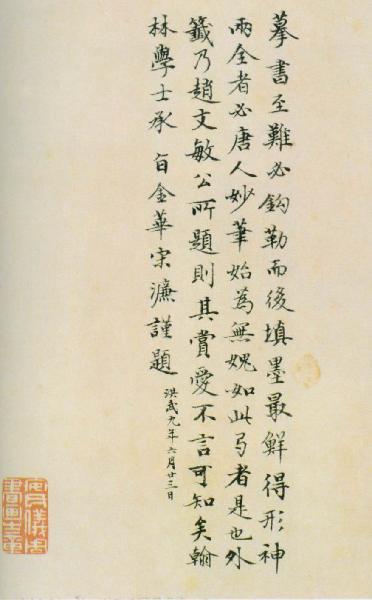 摹書至難必鈎勒而後填墨最鮮得形神
兩全者必唐人妙筆始為無媿如此弓者是也外
籤乃趙文敏公所題則其賞愛不言可知矣翰
林學士承旨金華宋濂謹題
洪武九年六月廿三日
安儀周
書畫之章